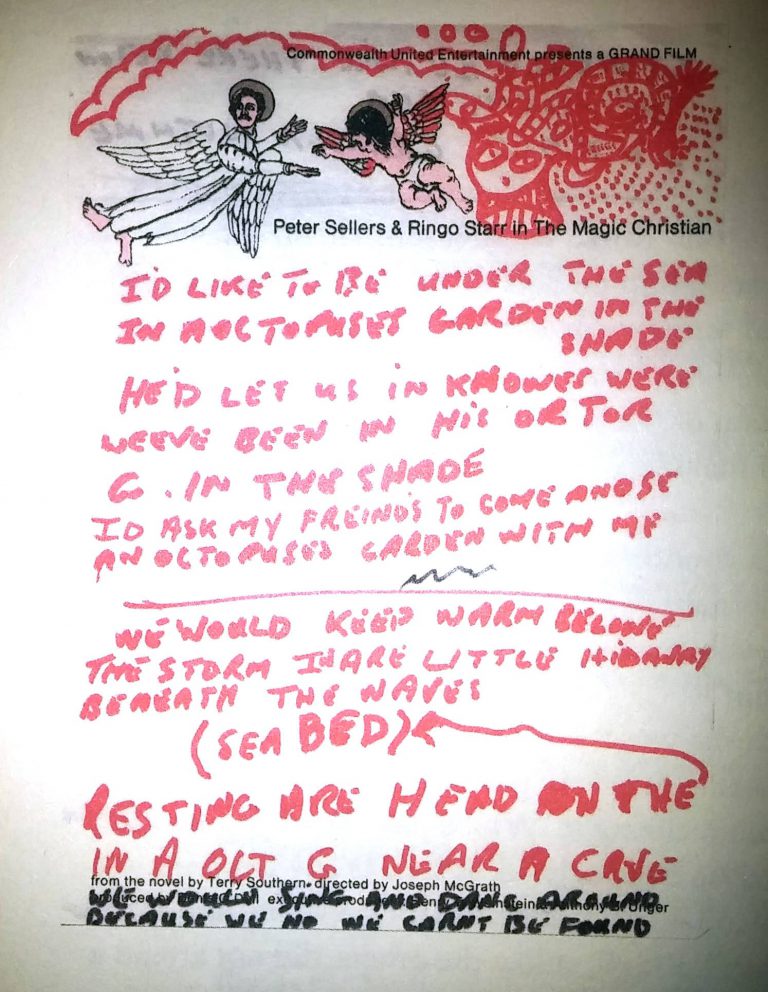 Commonwealth United Entertainment presents a GRAND FILM
Peter Sellers & Ringo Starr in The Magic Christian
I'D LIKE TO BE UNDER THE SEA
IN A OCTOPUSES GARDEN IN THE
SHADE
HE'D LET US IN KNOWES WERE
WEEVE BEEN IN HIS OR TOR
G. IN THE SHADE
ID ASK MY FREINDS TO COME ANDSE
AN OCTOPUSES GARDEN WITH ME
WE WOULD KEEP WARM BELOWE
THE STORM IN ARE LITTLE HIDAWAY
BENEATH THE WAVES
(SEA BED)
RESTING ARE HEAD ON THE
IN A OCT G NEAR A CAVE
from the novel by Terry Southern. directed by Joseph McGrath
produced by executive Unger
WE SING AND DANCE AROUND
BECAUSE WE NO WE CARNT BE FOUND